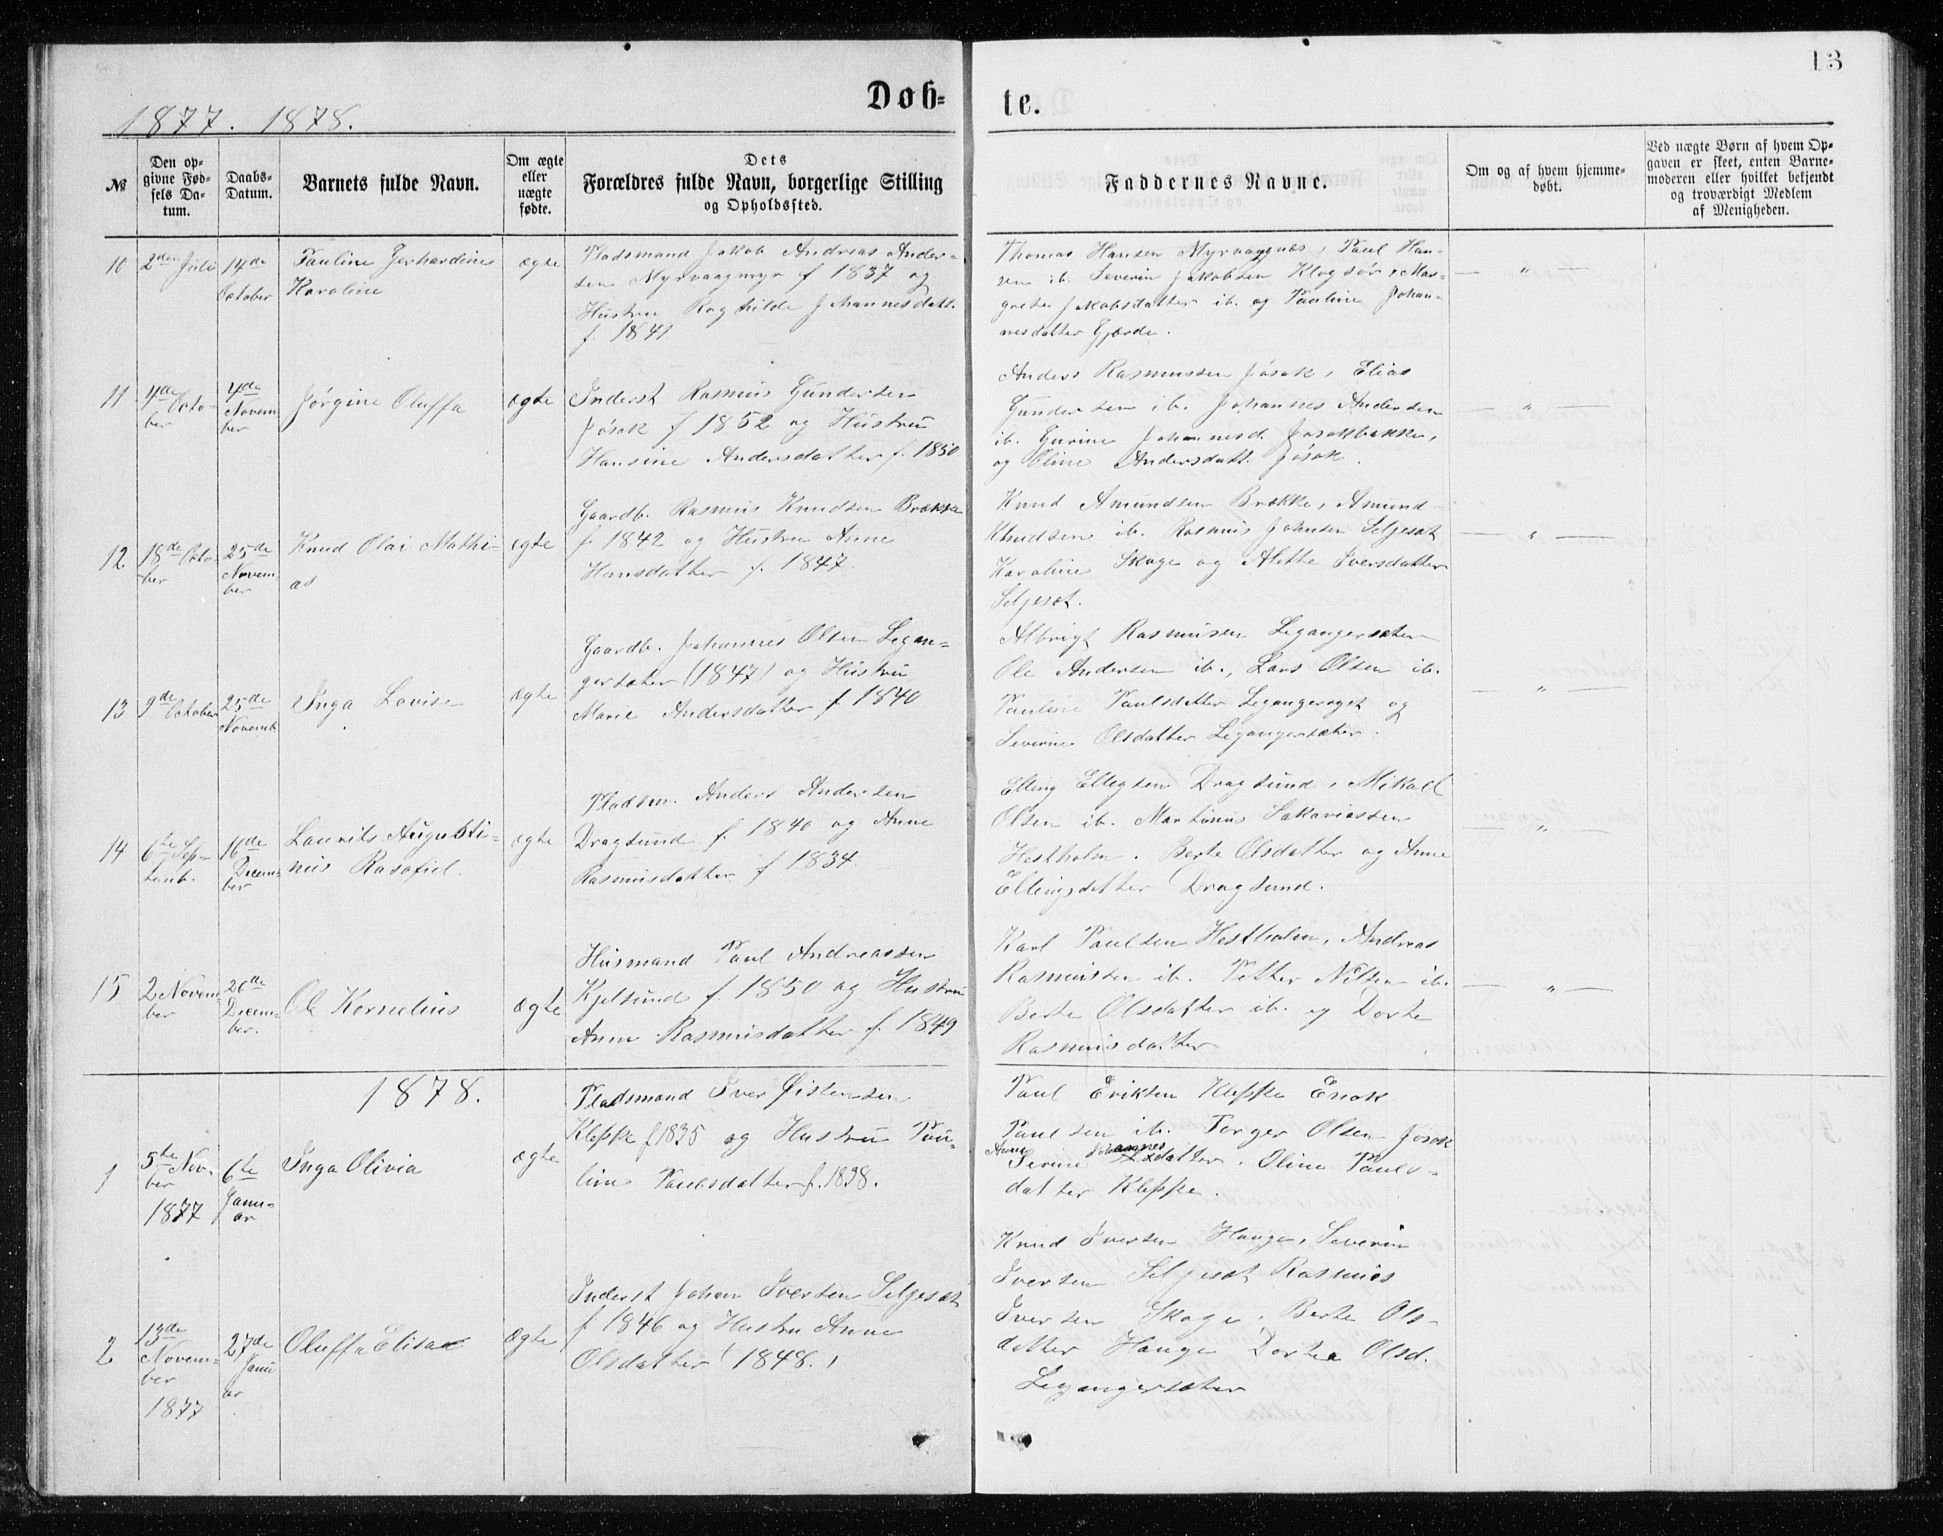 13
Döb-
te.
1877. 1878.
№
Den op-
givne Fød-
sels Da-
tum.
Daabs-
Datum.
Barnets fulde Navn.
Om ægte
eller
uægte
fødte.
Dets
Forældres fulde Navn, borgerlige Stilling
og Opholdssted.
Faddernes Navne.
Om og af hvem hjemme-
døbt.
Ved uægte Børn af hvem Op-
gaven er skeet, enten Barne-
moderen eller hvilket bekjendt
og troværdigt Medlem
af Menigheden.
10
2den Juli
14de
October
Pauline Gerhardine
Karoline
ægte
Pladsmand Jakob Andreas Ander-
sen Myrvaagmyr f 1837 og
Hustru Raghilde Johannesdatt.
f. 1841
Thomas Hansen Myrvaagnæs, Paul Han-
sen ib. Severin Jakobsen Klogsør, Mar-
grete Jakobsdatter ib. og Pauline Johan-
nesdatter Gjerde.
— " —
11
4de Octo-
ber
4de
Novem
ber
Jørgine Oluffa
ægte
Inderst Rasmus Gundersen
Jøsok f 1852 og Hustru
Hansine Andersdatter f. 1850
Anders Rasmussen Jøsok, Elias
Gundersen ib. Johannes Andersen
ib. Gurine Johannesd. Jøsokbakke,
og Oline Andersdatt. Jøsok.
— " —
12
18de Octo-
ber
25de
Novem
ber
Knud Olai Mathi-
as
ægte
Gaardb. Rasmus Knudsen Brække
f. 1842 og Hustru Anne
Hansdatter f. 1847.
Knud Amundsen Brække, Amund
Knudsen ib. Rasmus Johnsen Seljeset
Karoline Skoge og Alette Iversdatter
Seljeset.
— " —
13
9de October
25de
Novemb
Inga Lovise
ægte
Gaardb. Johannes Olsen Legan-
gersæter (1847) og Hustru
Marie Andersdatter f 1840
Albrigt Rasmusen Legangersæter
Ole Andersen ib., Lars Olsen ib.
Pauline Paulsdatter Legangeroyst og
Severine Olsdatter Legangersæter.
— " —
14
6te Sep-
temb.
16de
Decem-
ber
Laurits Augusti-
nus Rasofiel.
ægte
Pladsm. Anders Andersen
Dragsund f. 1840 og Anne
Rasmusdatter f 1834.
Elling Ellegsen Dragsund, Mikall
Olsen ib. Martinus Sakariassen
Hestholm. Berte Olsdatter og Anne
Ellingsdatter Dragsund.
— " —
15
2 Novem-
ber
26de
Decem-
ber.
Ole Kornelius
ægte
Husmand Paul Andreassen
Kjelsund f. 1850 og Hustru
Anne Rasmusdatter f. 1849
Karl Paulsen Hestholm, Andreas
Rasmussen ib. Petter Nilsen ib.
Berte Olsdatter ib. og Dorte
Rasmusdatter
— " —
1878.
1
5te Nov.
ber
1877
6te
Janu-
ar
Inga Olivia
ægte
Pladsmand Iver Øistensen
Kleppe f 1835 og Hustru Pau-
line Paulsdatter f. 1838.
Paul Eriksen Kleppe Enok
Paulsen ib. Torger Olsen Jøsok
Anne Johannes
Serine datter. Oline Pauls-
datter Kleppe.
2
13de
Novem-
ber
1877
27de
Janu
ar
Oluffa Elisa
ægte
Inderst Johan Iversen Seljeset
f 1846 og Hustru Anne
Olsdatter f 1848.
Knud Iversen Hauge, Severin
Iversen Seljeset Rasmus
Iversen Skoge. Berte Ols-
datter Hauge Dortea Olsd.
Legangersæter